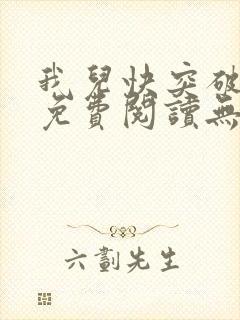 我兒快突破
免費閱讀無
六劃先生